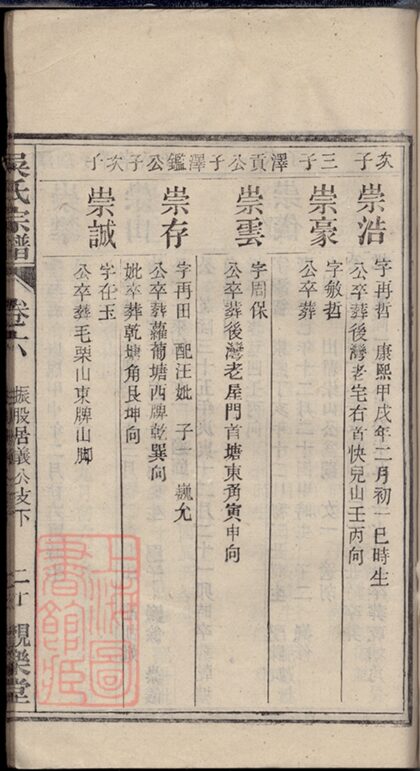 次子
崇浩
字再哲 康熙甲戌年二月初一巳時生
公卒葬後灣老宅右首快兒山壬丙向
三子
崇豪
字敏哲
公卒葬
澤貢公子
崇雲
字周保
公卒葬後灣老屋門首塘東角寅申向
澤鑑公子
崇存
字再田 配汪妣 子一 巍允
公卒葬蘿葡塘西牌乾巽向
妣卒葬乾塘角艮坤向
次子
崇誠
字在玉
公卒葬毛栗山東牌山脚
吳氏宗譜
卷六
振股居義公支下
二
觀樂堂
上海圖書館藏